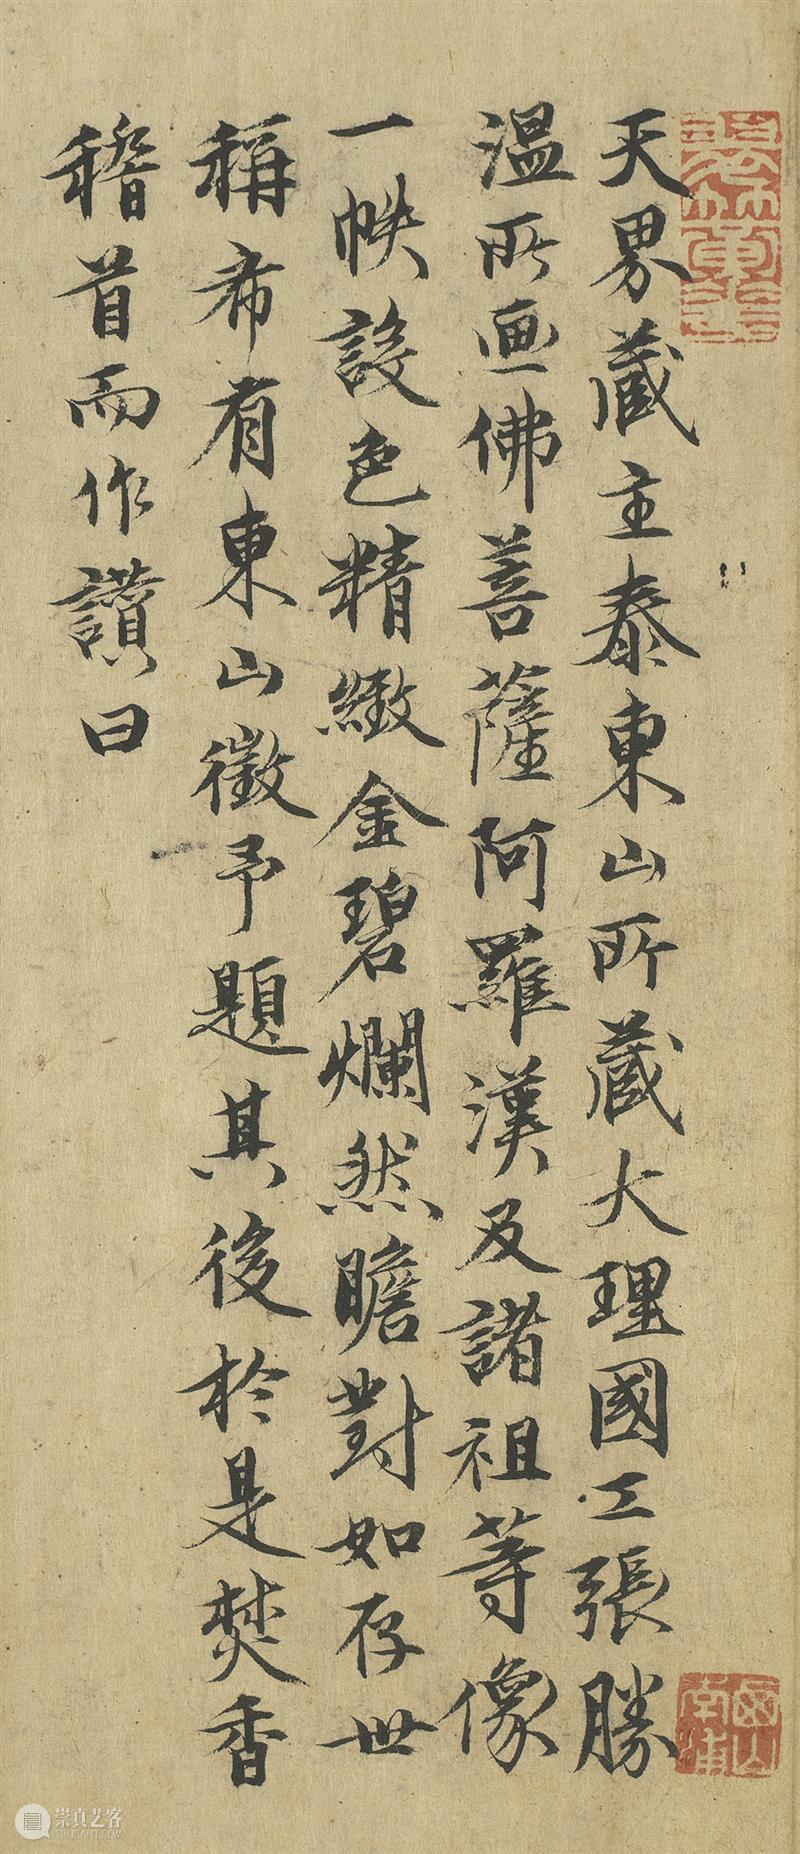 天界蔵主泰東山所蔵大理國工張勝
温所画佛菩薩阿羅漢及諸祖等像
一帙設色精緻金碧爛然瞻對如存世
稱希有東山徵予題其後於是焚香
稽首而作讚曰
崇真艺客